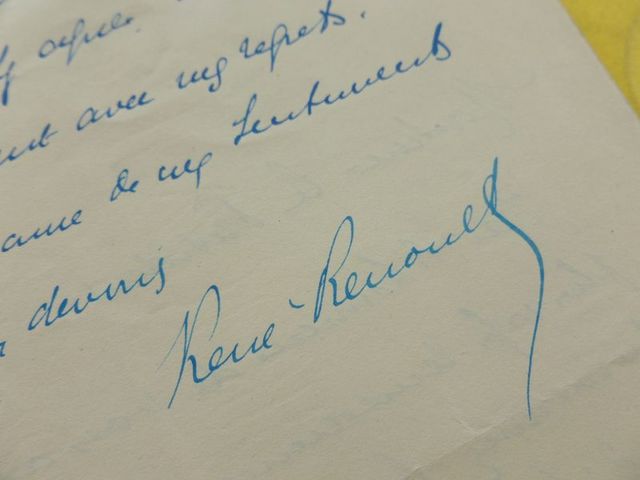 agréer.
avec mes regrets.
de mes sentiments
devoués
René Renoult